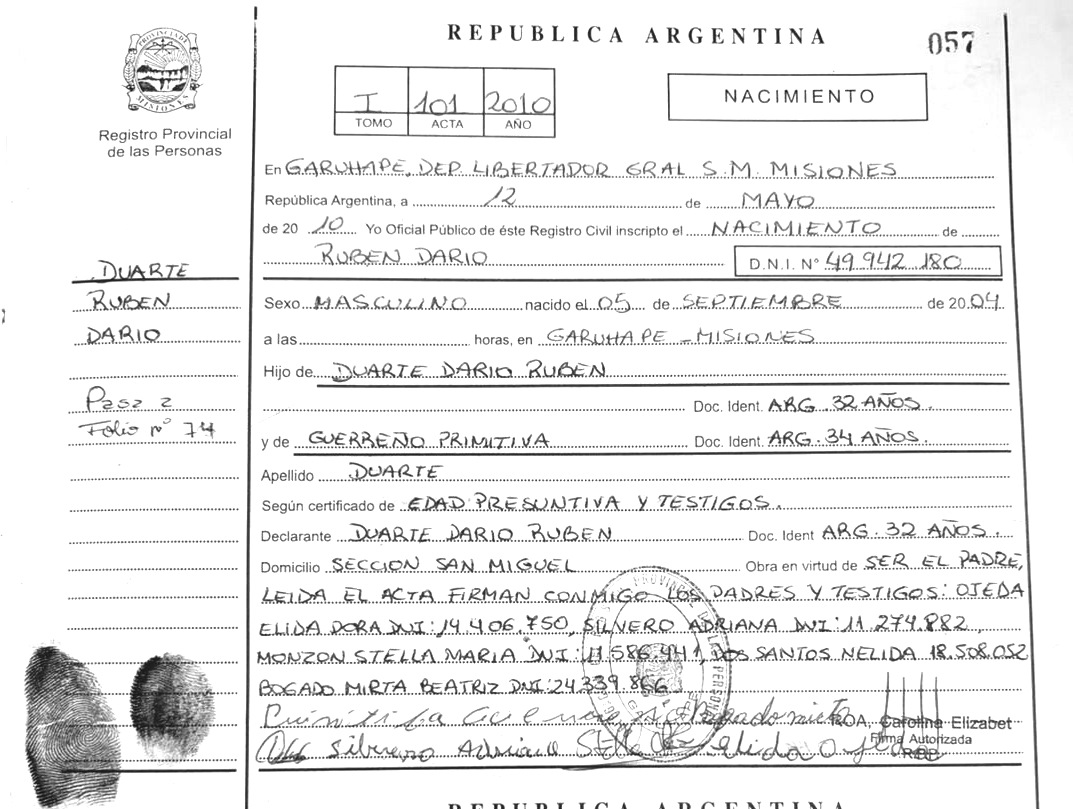 REPUBLICA ARGENTINA
057
PROVINCIA DE MISIONES
Registro Provincial
de las Personas
I 101 2010
TOMO ACTA AÑO
NACIMIENTO
En GARUHAPE, DEP. LIBERTADOR GRAL S.M. MISIONES
República Argentina, a 12 de MAYO
de 20 10 Yo Oficial Público de éste Registro Civil inscripto el NACIMIENTO de
RUBEN DARIO D.N.I. N° 49 942 180
DUARTE
RUBEN
DARIO
Pasa a
Folio n° 74
Sexo MASCULINO nacido el 05 de SEPTIEMBRE de 20 04
a las horas, en GARUHAPE - MISIONES
Hijo de DUARTE DARIO RUBEN
Doc. Ident. ARG. 32 AÑOS.
y de GUERREÑO PRIMITIVA Doc. Ident. ARG. 34 AÑOS.
Apellido DUARTE
Según certificado de EDAD PRESUNTIVA Y TESTIGOS.
Declarante DUARTE DARIO RUBEN Doc. Ident ARG. 32 AÑOS.
Domicilio SECCION SAN MIGUEL Obra en virtud de SER EL PADRE,
LEIDA EL ACTA FIRMAN CONMIGO LOS PADRES Y TESTIGOS: OJEDA
ELIDA DORA DNI: 14.406.750, SILVERO ADRIANA DNI: 11.274.882,
MONZON STELLA MARIA DNI: 11.586.441, DOS SANTOS NELIDA 18.508.052
BOGADO MIRTA BEATRIZ DNI: 24.339.866
ROA, Carolina Elizabet
Firma Autorizada
RPP
Silvero Adriana Stella Elida Ojeda
REPUBLICA ARGENTINA